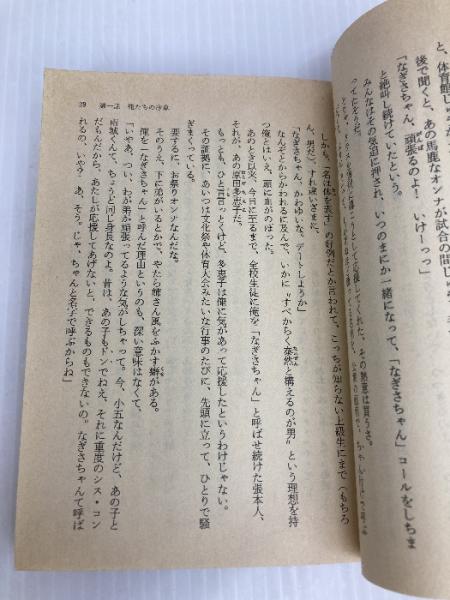 と、体育館じゅう
後で聞くと、あの馬鹿なオンナが試合の間じゅう
「なぎさちゃん、頑張るのよ！　いけーっっ」
と絶叫し続けていたという。
みんなはその気迫に押され、いつのまにか一緒になって、「なぎさちゃん」コールをしちま
ってたそうだ。
応援してくれた、その熱意は買うさ。
しかも、「名は体を表す」の好例だとか言われて、こっちが知らない上級生にまで（もちろ
ん、男だ）、すれ違いざまに、
「なぎさちゃん、かわゆいな、デートしようか」
なんぞとからかわれるに及んで、いかに〝すべからく泰然と構えるのが男〟という理想を持
つ俺とはいえ、頭に血がのぼった。
あのとき以来、今日に至るまで、全校生徒に俺を「なぎさちゃん」と呼ばせ続けた張本人、
それが、あの原田多恵子だ。
もっとも、ひと言言っとくけど、多恵子は俺に気があって応援したというわけじゃない。
その証拠に、あいつは文化祭や体育大会みたいな行事のたびに、先頭に立って、ひとりで騒
ぎまくっている。
要するに、お祭りオンナなんだな。
そのうえ、下に弟がいるとかで、やたら姉さん風をふかす癖がある。
俺を「なぎさちゃん」と呼んだ理由というのも、深い意味はなくて、
「いやあ、つい、わが弟が頑張ってるような気がしちゃって。今、小五なんだけど、あの子と
雨城くんて、ちょうど同じ身長なのよ。昔は、あの子もドンでねえ、それに重度のシス・コン
だもんだから、あたしが応援してあげないと、できるものもできないの。なぎさちゃんて呼ば
れるの、いや？　あ、そう。じゃ、ちゃんと名字で呼ぶからね」
39　第一話　俺たちの序章